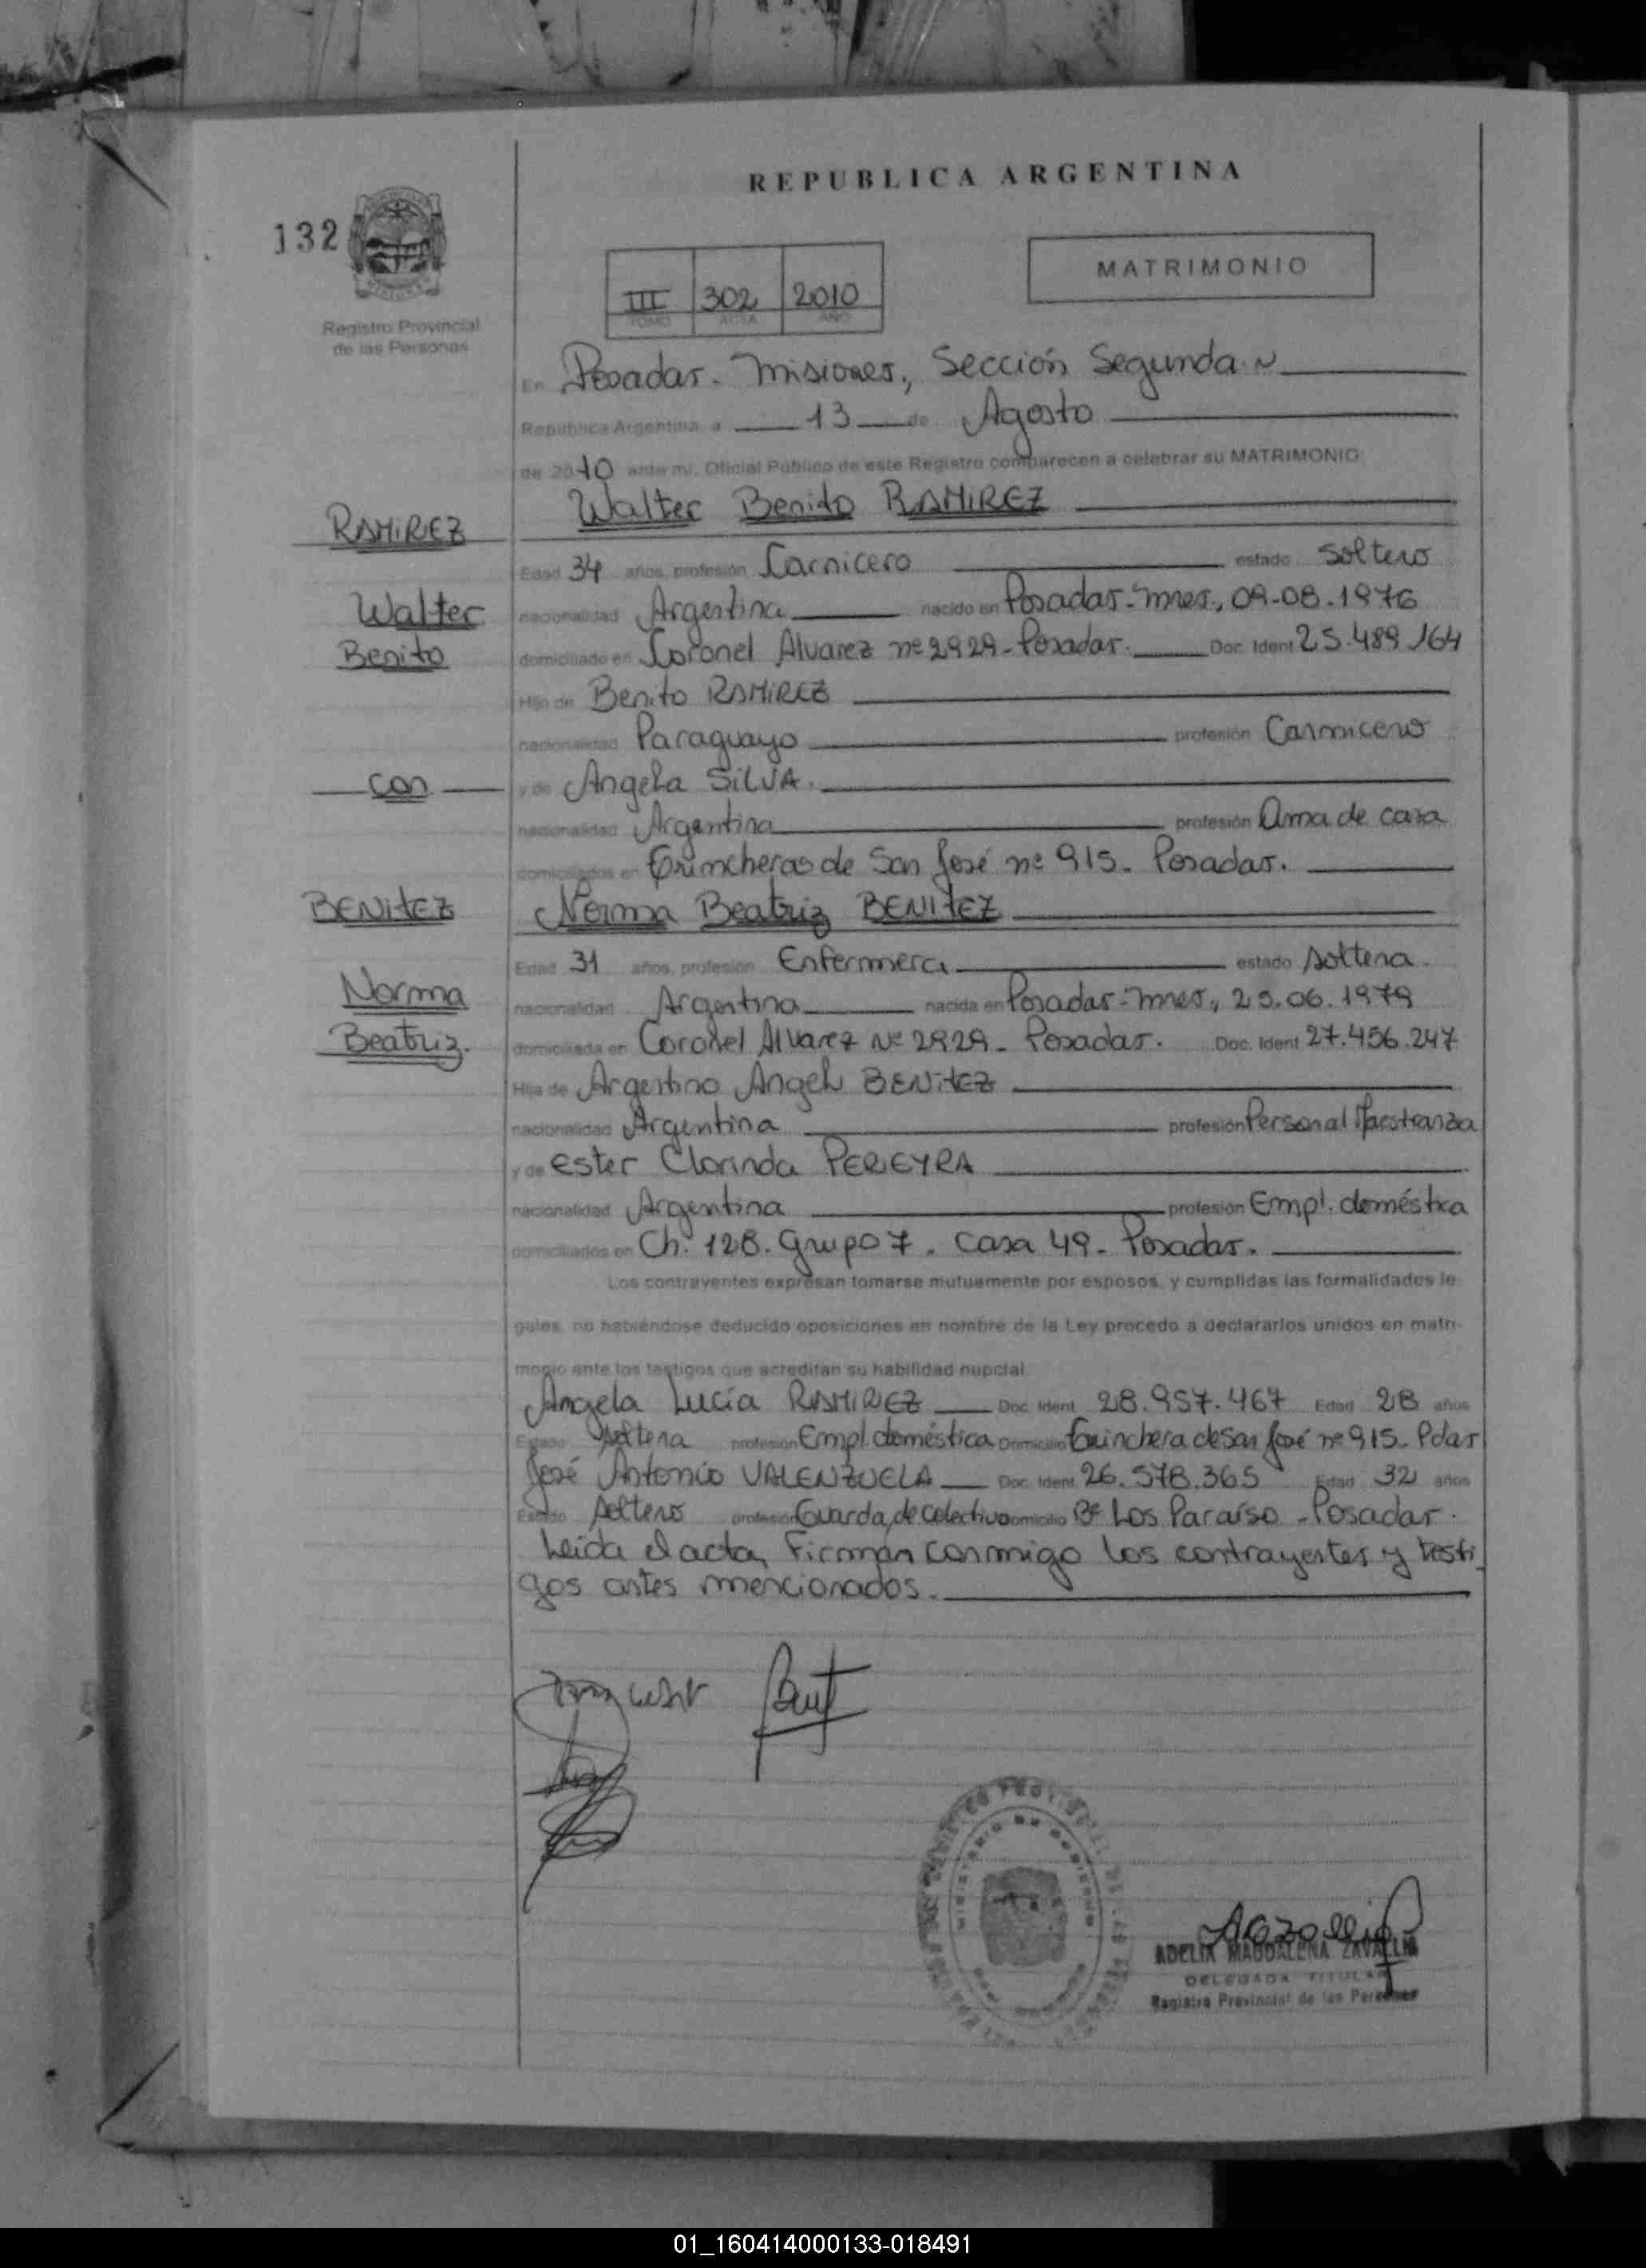 REPUBLICA ARGENTINA
132
MATRIMONIO
III 302 2010
TOMO ACTA AÑO
Registro Provincial
de las Personas
En Posadas. Misiones, Sección Segunda
República Argentina, a 13 de Agosto
de 2010 ante mí, Oficial Público de este Registro comparecen a celebrar su MATRIMONIO
Walter Benito RAMIREZ
RAMIREZ
Edad 34 años, profesión Carnicero estado soltero
Walter nacionalidad Argentina nacido en Posadas-Mnes., 09-08-1976
Benito domiciliado en Coronel Alvarez nº 2929-Posadas. Doc. Ident 25.489.164
Hijo de Benito RAMIREZ
nacionalidad Paraguayo profesión Carnicero
con y de Angela SILVA.
nacionalidad Argentina profesión Ama de casa
domiciliados en Trincheras de San José nº 915. Posadas.
BENITEZ Norma Beatriz BENITEZ
Edad 31 años, profesión Enfermera estado soltera.
Norma nacionalidad Argentina nacida en Posadas-Mnes., 25.06.1979
Beatriz. domiciliada en Coronel Alvarez Nº 2929- Posadas. Doc. Ident 27.456.247
Hija de Argentino Angel BENITEZ
nacionalidad Argentina profesión Personal Maestranza
y de Ester Clorinda PEREYRA
nacionalidad Argentina profesión Empl. doméstica
domiciliados en Ch. 128. Grupo 7. Casa 49- Posadas.
Los contrayentes expresan tomarse mutuamente por esposos, y cumplidas las formalidades le-
gales, no habiéndose deducido oposiciones en nombre de la Ley procedo a declararlos unidos en matri-
monio ante los testigos que acreditan su habilidad nupcial.
Angela Lucía RAMIREZ Doc. Ident 28.957.467 Edad 28 años
Estado soltera profesión Empl. doméstica Domicilio Trinchera de San José nº 915- Pdas
José Antonio VALENZUELA Doc. Ident 26.578.365 Edad 32 años
Estado soltero profesión Guarda de colectivo Domicilio Bº Los Paraíso -Posadas.
Leida el acta, Firman conmigo los contrayentes y testi
gos antes mencionados.
ADELIA MAGDALENA ZAVALLIA
DELEGADA TITULAR
Registro Provincial de las Personas
01_160414000133-018491